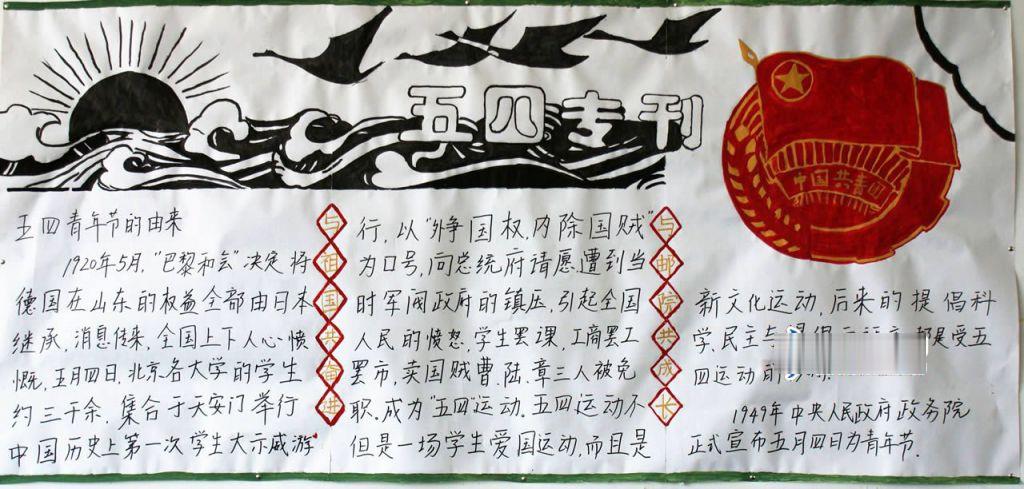 五四专刊
中国共青团
五四青年节的由来
1920年5月，“巴黎和会”决定将
德国在山东的权益全部由日本
继承，消息传来，全国上下人心愤
慨，五月四日，北京各大学的学生
约三千余，集合于天安门举行
中国历史上第一次学生大示威游
与祖国共奋进
行，以“外争国权，内除国贼”
为口号，向总统府请愿遭到当
时军阀政府的镇压，引起全国
人民的愤怒，学生罢课，工商罢工
罢市，卖国贼曹、陆、章三人被免
职，成为“五四”运动。五四运动不
但是一场学生爱国运动，而且是
与邮院共成长
新文化运动，后来的提倡科
学，民主与 都是受五
四运动
1949年中央人民政府政务院
正式宣布五月四日为青年节。